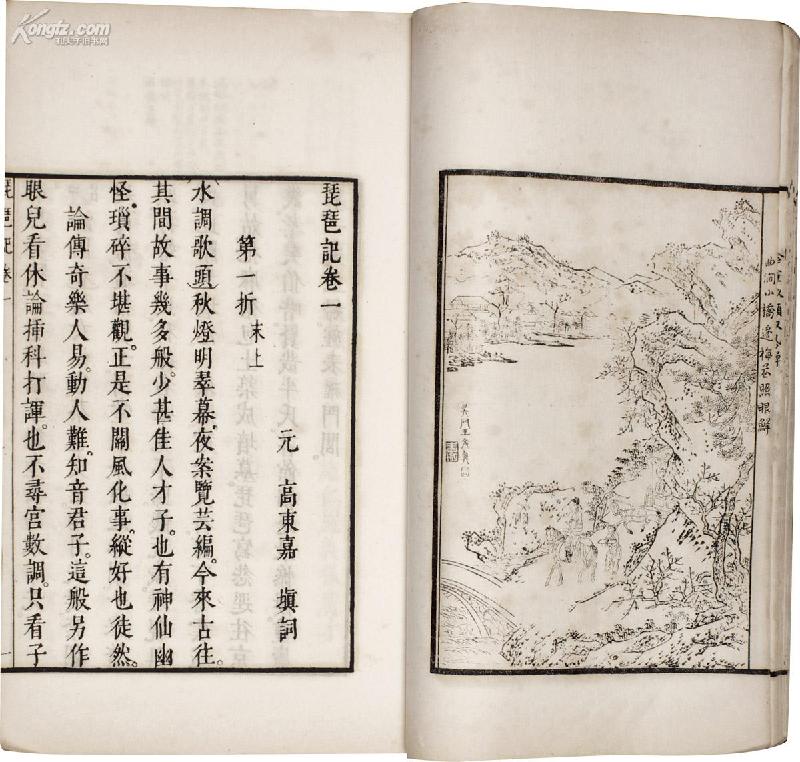 Kongfz.com
孔夫子旧书网
曲澗小橋邊梅花照眼鮮
琵琶記卷一
元 高東嘉 塡詞
第一折 末上
水調歌頭秋燈明翠幕。夜案覽芸編。今來古往。
其間故事幾多般。少甚佳人才子。也有神仙幽
怪。瑣碎不堪觀。正是不關風化事。縱好也徒然。
論傳奇樂人易。動人難。知音君子。這般另作
眼兒看休論揷科打諢。也不尋宮數調。只看子
琵琶記卷一